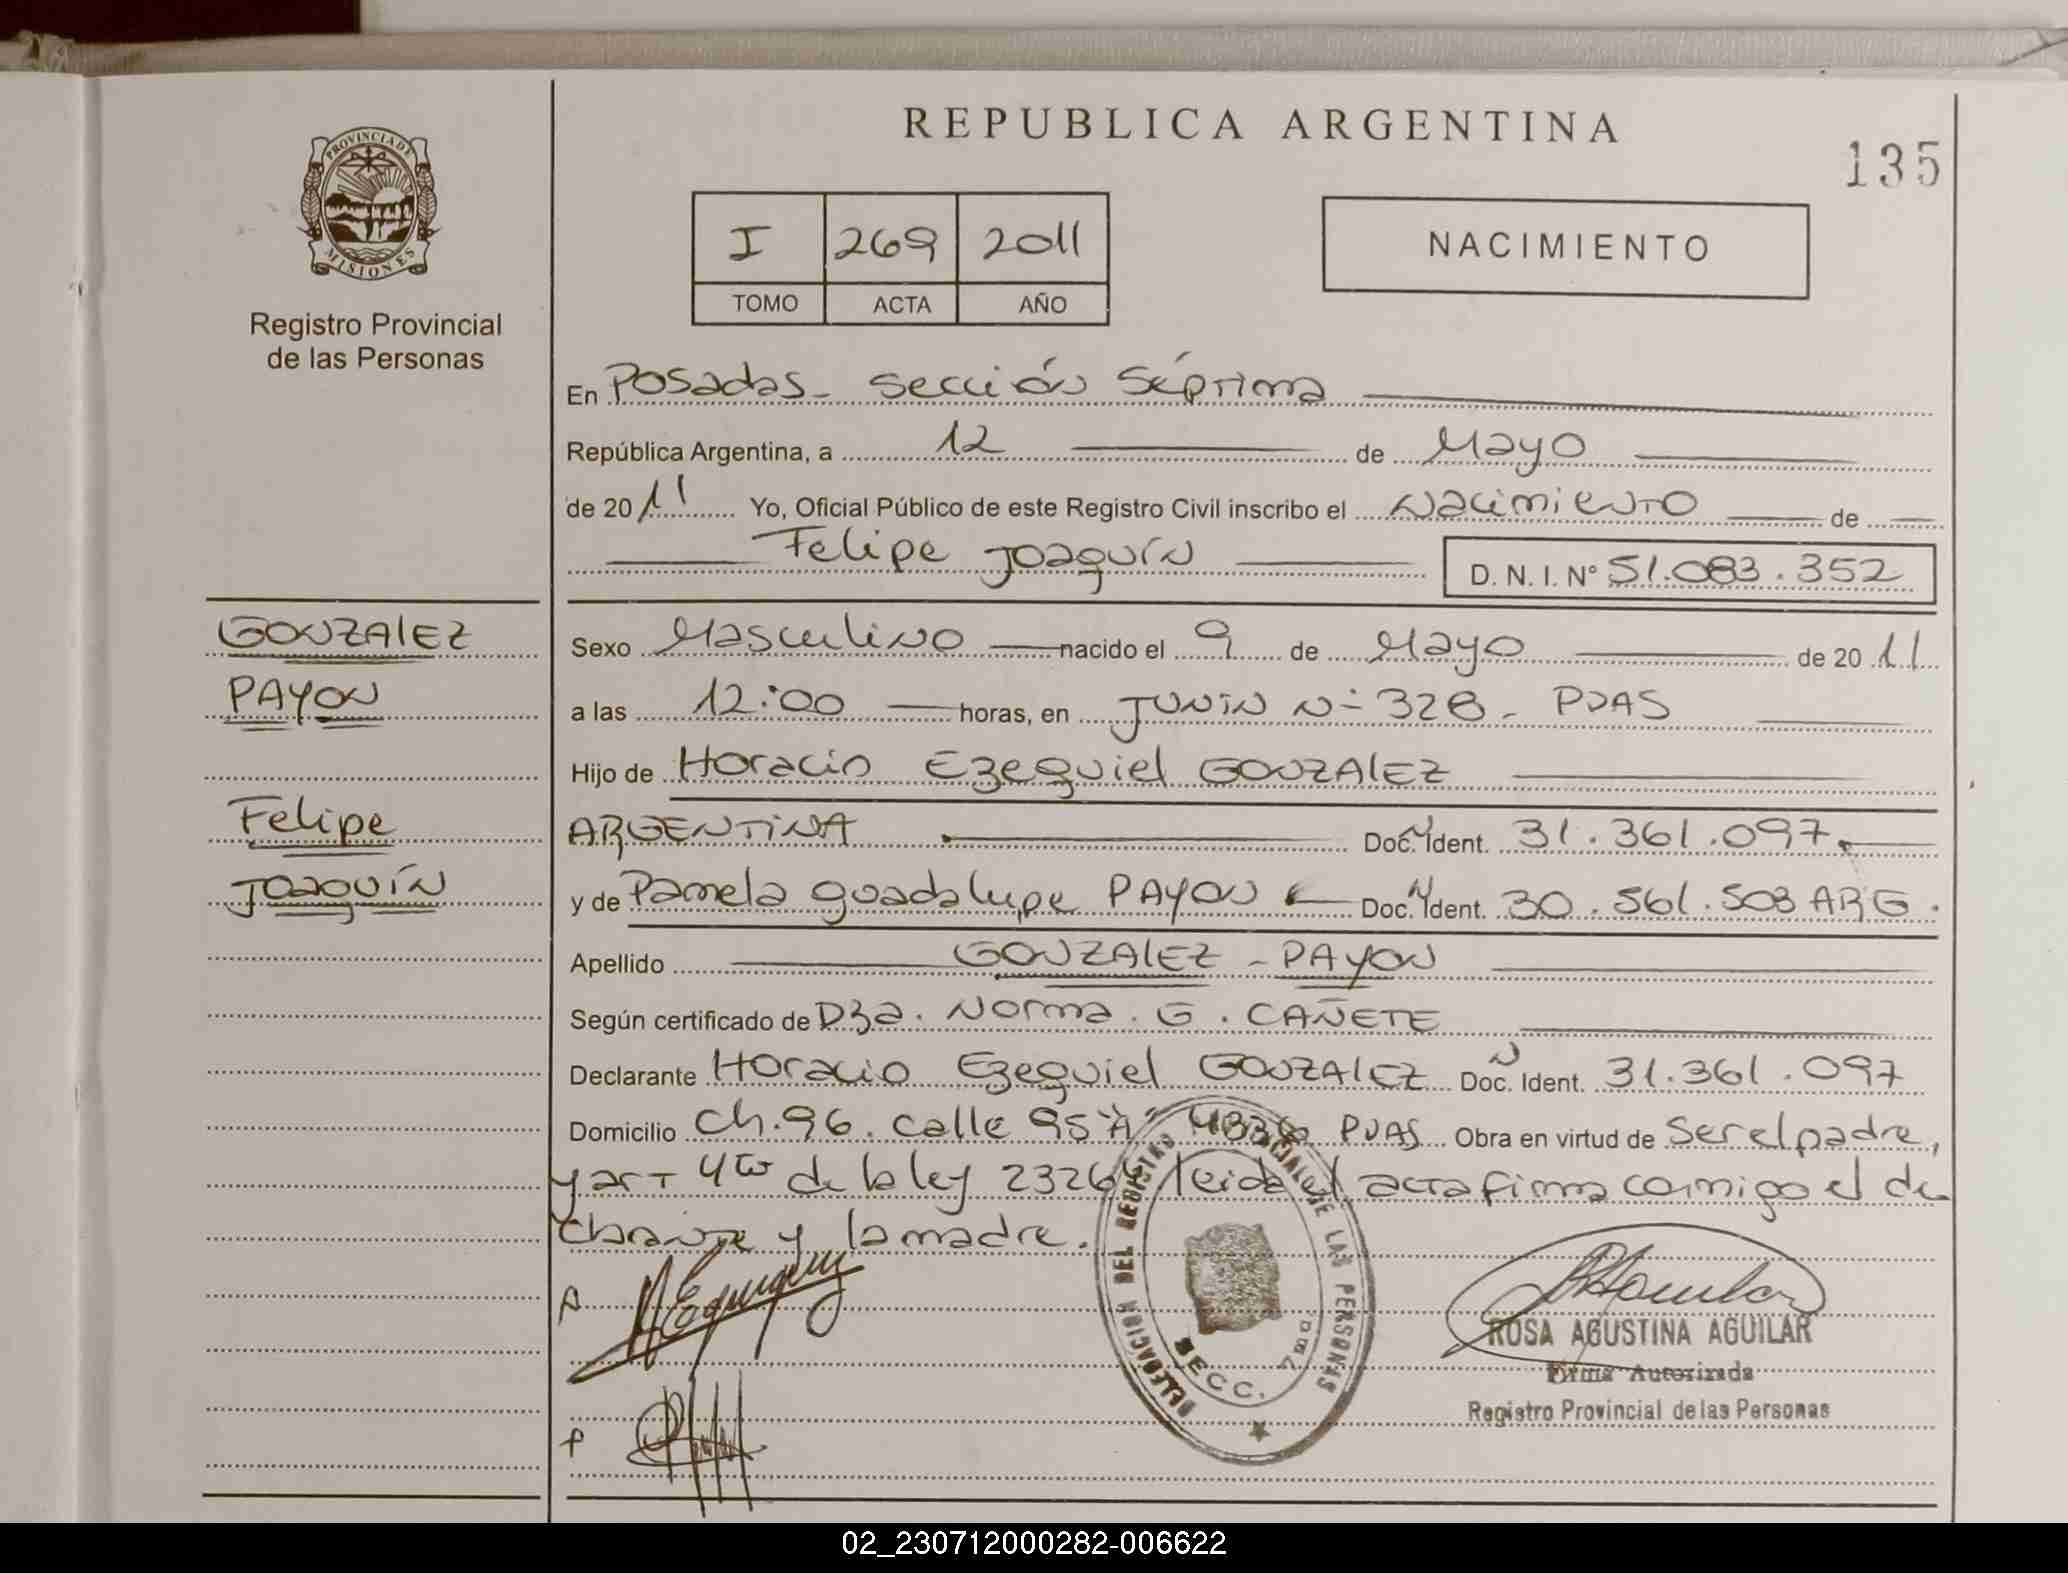 REPUBLICA ARGENTINA
135
PROVINCIA DE
MISIONES
Registro Provincial
de las Personas
I 269 2011
TOMO ACTA AÑO
NACIMIENTO
En Posadas - Sección Séptima
República Argentina, a 12 de Mayo
de 2011 Yo, Oficial Público de este Registro Civil inscribo el Nacimiento de
Felipe Joaquín D. N. I. Nº 51.083.352
GONZALEZ
PAYON
Felipe
Joaquín
Sexo Masculino nacido el 9 de Mayo de 2011
a las 12:00 horas, en JUNIN Nº 328 - PDAS
Hijo de Horacio Ezequiel GONZALEZ
ARGENTINA Doc. Ident. 31.361.097
y de Pamela Guadalupe PAYON Doc. Ident. 30.561.503 ARG.
Apellido GONZALEZ - PAYON
Según certificado de Dra. Norma. G. CAÑETE
Declarante Horacio Ezequiel GONZALEZ Doc. Ident. 31.361.097
Domicilio Ch. 96. calle 95 "A" PDAS Obra en virtud de ser el padre,
y art 4to de la ley 23264 leida el acta firma conmigo el de
clarante y la madre.
DELEGACION DEL REGISTRO PROVINCIAL DE LAS PERSONAS
SECC. 7ma.
ROSA AGUSTINA AGUILAR
Firma Autorizada
Registro Provincial de las Personas
02_230712000282-006622